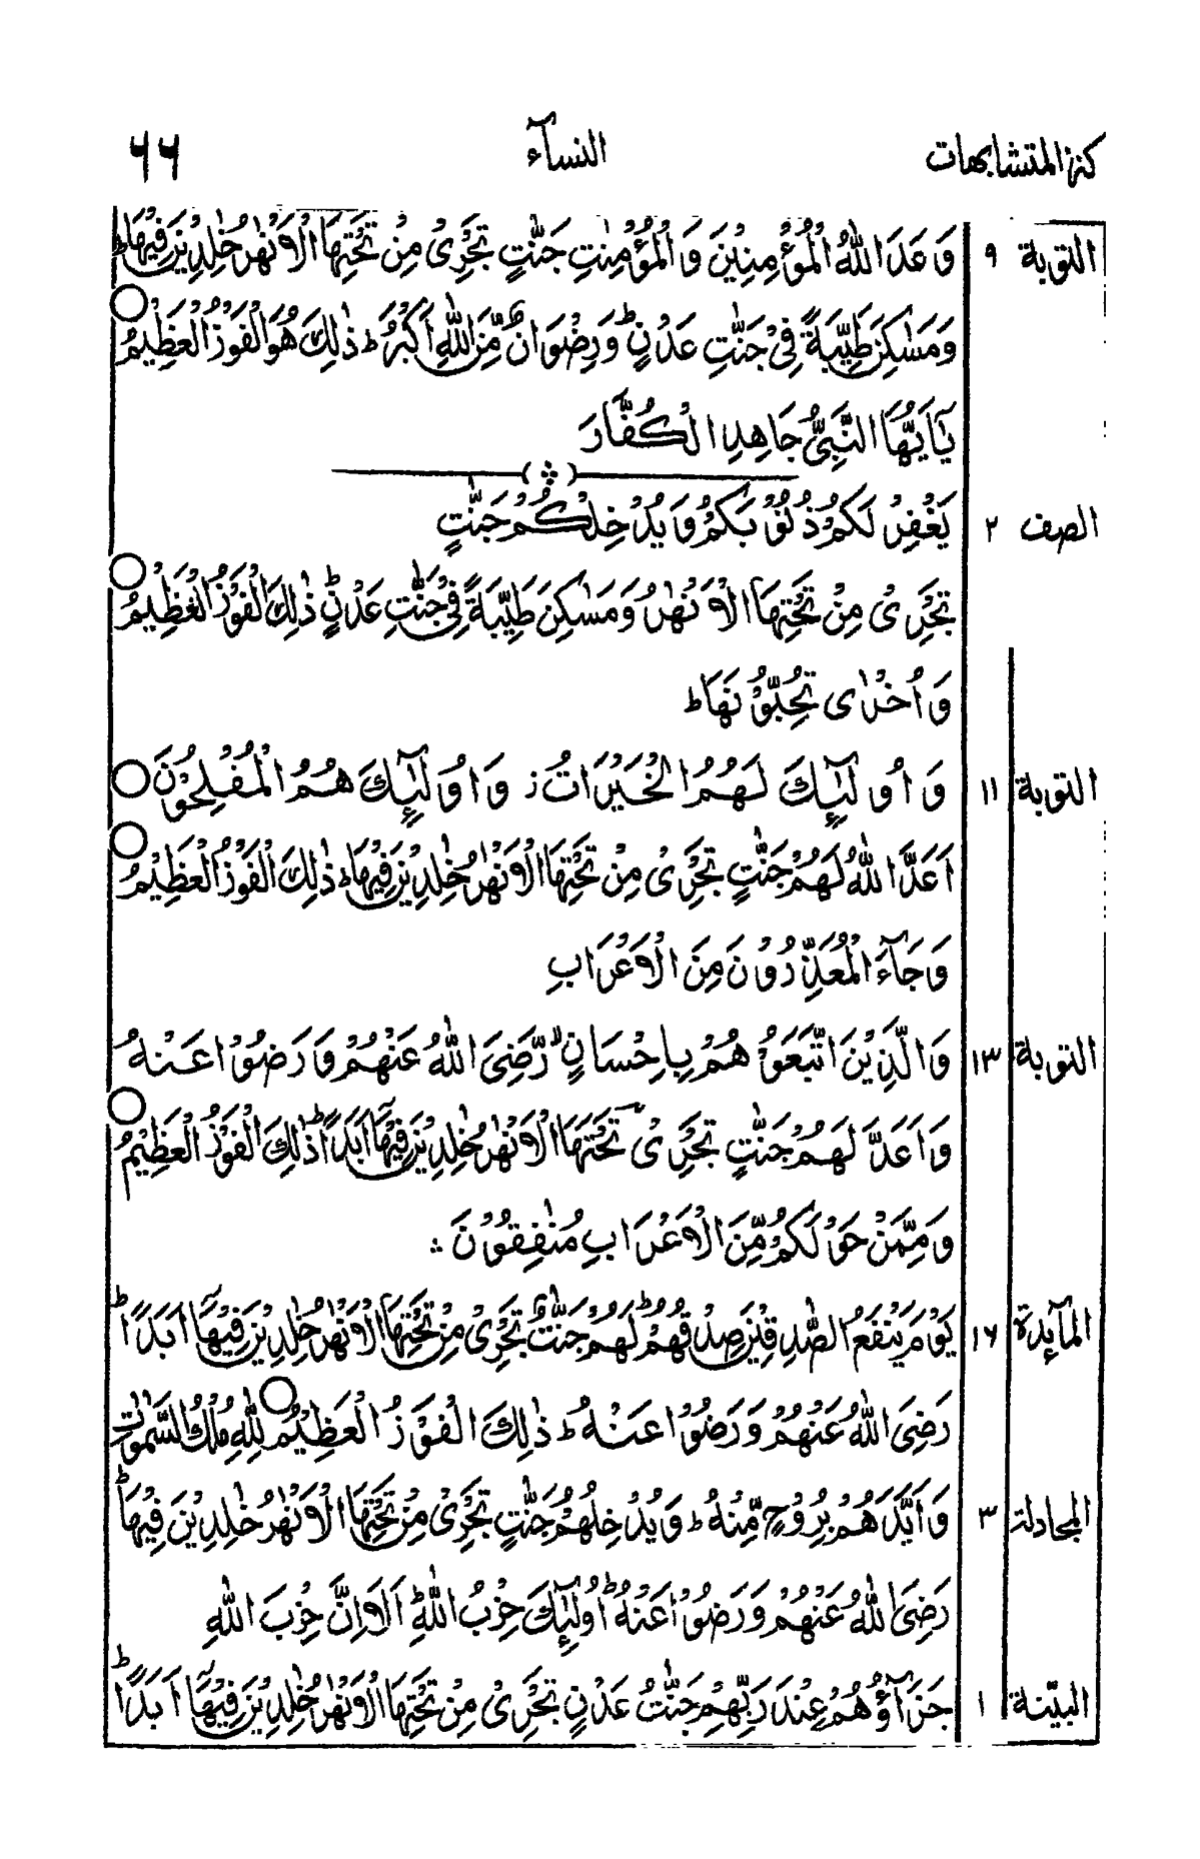 كنز المتشابهات النسآء ٦٦
التوبة ٩ وَعَدَ اللّٰهُ الْمُؤْمِنِيْنَ وَالْمُؤْمِنٰتِ جَنّٰتٍ تَجْرِىْ مِنْ تَحْتِهَا الْاَنْهٰرُ خٰلِدِيْنَ فِيْهَا ؕ
وَمَسٰكِنَ طَيِّبَةً فِىْ جَنّٰتِ عَدْنٍ ؕ وَرِضْوَانٌ مِّنَ اللّٰهِ اَكْبَرُ ؕ ذٰلِكَ هُوَ الْفَوْزُ الْعَظِيْمُ ○
يٰٓاَيُّهَا النَّبِىُّ جَاهِدِ الْكُفَّارَ
الصف ٢ يَغْفِرْ لَكُمْ ذُنُوْبَكُمْ وَيُدْخِلْكُمْ جَنّٰتٍ
تَجْرِىْ مِنْ تَحْتِهَا الْاَنْهٰرُ وَمَسٰكِنَ طَيِّبَةً فِىْ جَنّٰتِ عَدْنٍ ؕ ذٰلِكَ الْفَوْزُ الْعَظِيْمُ ○
وَاُخْرٰى تُحِبُّوْنَهَا ؕ
التوبة ١١ وَاُولٰٓئِكَ لَهُمُ الْخَيْرَاتُ ز وَاُولٰٓئِكَ هُمُ الْمُفْلِحُوْنَ ○
اَعَدَّ اللّٰهُ لَهُمْ جَنّٰتٍ تَجْرِىْ مِنْ تَحْتِهَا الْاَنْهٰرُ خٰلِدِيْنَ فِيْهَا ؕ ذٰلِكَ الْفَوْزُ الْعَظِيْمُ ○
وَجَآءَ الْمُعَذِّرُوْنَ مِنَ الْاَعْرَابِ
التوبة ١٣ وَالَّذِيْنَ اتَّبَعُوْهُمْ بِاِحْسَانٍ ۙ رَّضِىَ اللّٰهُ عَنْهُمْ وَرَضُوْا عَنْهُ
وَاَعَدَّ لَهُمْ جَنّٰتٍ تَجْرِىْ تَحْتَهَا الْاَنْهٰرُ خٰلِدِيْنَ فِيْهَآ اَبَدًا ؕ ذٰلِكَ الْفَوْزُ الْعَظِيْمُ ○
وَمِمَّنْ حَوْلَكُمْ مِّنَ الْاَعْرَابِ مُنٰفِقُوْنَ ۛ
المآئدة ١٦ يَوْمُ يَنْفَعُ الصّٰدِقِيْنَ صِدْقُهُمْ ؕ لَهُمْ جَنّٰتٌ تَجْرِىْ مِنْ تَحْتِهَا الْاَنْهٰرُ خٰلِدِيْنَ فِيْهَآ اَبَدًا ؕ
رَضِىَ اللّٰهُ عَنْهُمْ وَرَضُوْا عَنْهُ ؕ ذٰلِكَ الْفَوْزُ الْعَظِيْمُ ○ لِلّٰهِ مُلْكُ السَّمٰوٰتِ
المجادلة ٣ وَاَيَّدَهُمْ بِرُوْحٍ مِّنْهُ ؕ وَيُدْخِلُهُمْ جَنّٰتٍ تَجْرِىْ مِنْ تَحْتِهَا الْاَنْهٰرُ خٰلِدِيْنَ فِيْهَا ؕ
رَضِىَ اللّٰهُ عَنْهُمْ وَرَضُوْا عَنْهُ ؕ اُولٰٓئِكَ حِزْبُ اللّٰهِ ؕ اَلَا اِنَّ حِزْبَ اللّٰهِ
البيّنة ١ جَزَآؤُهُمْ عِنْدَ رَبِّهِمْ جَنّٰتُ عَدْنٍ تَجْرِىْ مِنْ تَحْتِهَا الْاَنْهٰرُ خٰلِدِيْنَ فِيْهَآ اَبَدًا ؕ